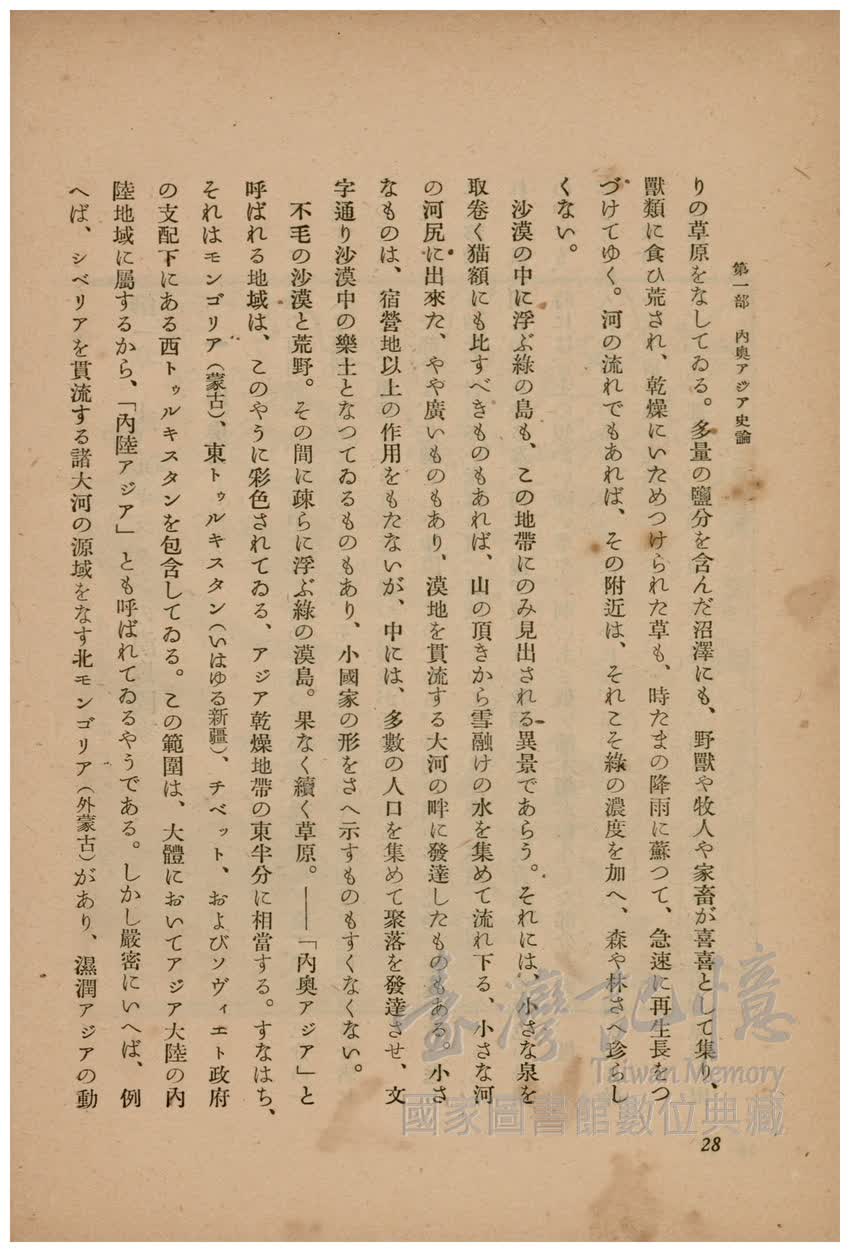 第一部　內奧アジア史論
りの草原をなしてゐる。多量の鹽分を含んだ沼澤にも、野獸や牧人や家畜が喜喜として集り、
獸類に食ひ荒され、乾燥にいためつけられた草も、時たまの降雨に蘇つて、急速に再生長をつ
づけてゆく。河の流れでもあれば、その附近は、それこそ綠の濃度を加へ、森や林さへ珍らし
くない。
沙漠の中に浮ぶ綠の島も、この地帶にのみ見出される異景であらう。それには、小さな泉を
取卷く猫額にも比すべきものもあれば、山の頂きから雪融けの水を集めて流れ下る、小さな河
の河尻に出來た、やや廣いものもあり、漠地を貫流する大河の畔に發達したものもある。小さ
なものは、宿營地以上の作用をもたないが、中には、多數の人口を集めて聚落を發達させ、文
字通り沙漠中の樂土となつてゐるものもあり、小國家の形をさへ示すものもすくなくない。
不毛の沙漠と荒野。その間に疎らに浮ぶ綠の漠島。果なく續く草原。――「內奧アジア」と
呼ばれる地域は、このやうに彩色されてゐる、アジア乾燥地帶の東半分に相當する。すなはち、
それはモンゴリア(蒙古)、東トゥルキスタン(いはゆる新疆)、チベット、およびソヴィエト政府
の支配下にある西トゥルキスタンを包含してゐる。この範圍は、大體においてアジア大陸の內
陸地域に屬するから、「內陸アジア」とも呼ばれてゐるやうである。しかし嚴密にいへば、例
へば、シベリアを貫流する諸大河の源域をなす北モンゴリア(外蒙古)があり、濕潤アジアの動
28
臺灣記憶
Taiwan Memory
國家圖書館數位典藏